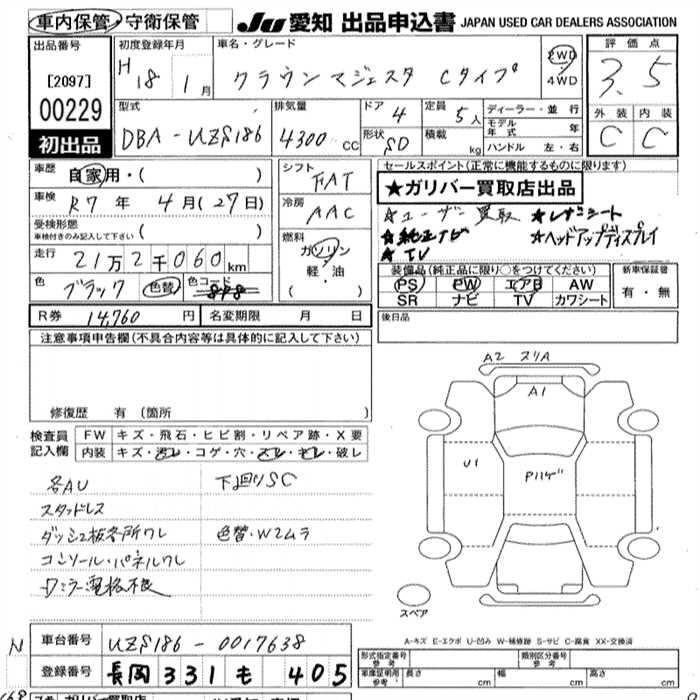 車内保管・守衛保管 JU 愛知 出品申込書 JAPAN USED CAR DEALERS ASSOCIATION
出品番号
[2097]
00229
初出品
初度登録年月
H 18年 1月
車名・グレード
クラウンマジェスタ Cタイプ
2WD
4WD
評価点
3.5
外装 内装
C C
型式
DBA-UZS186
排気量
4300 CC
ドア 4
形状 SD
定員 5人
積載 kg
ディーラー・並行
モデル年式 年
ハンドル 左・右
車歴 自家用・( )
車検 R7年 4月(27日)
受検形態
車検付きのみ記入して下さい ( )
走行 21万2千060km
色 ブラック 色替 色コード
シフト FAT
冷房 AAC
燃料
ガソリン
軽・油
( )
セールスポイント(正常に機能するものに限ります)
★ガリバー買取店出品
★ユーザー買取 ★レザーシート
★純正ナビ ★ヘッドアップディスプレイ
★TV
装備品(純正品に限り○をつけてください)
PS PW エアB AW
SR ナビ TV カワシート
新車保証書
有・無
R券 14,760円 名変期限 月 日
後日品
注意事項申告欄(不具合内容等は具体的に記入して下さい)
修復歴 有(箇所 )
検査員記入欄
FW キズ・飛石・ヒビ割・リペア跡・X要
内装 キズ・汚レ・コゲ・穴・スレ・キレ・破レ
各AU 下廻りSC
スタッドレス
ダッシュ板各所ワレ 色替・Wスムラ
コンソール・パネルワレ
Dミラー電格不良
A2 スリA
A1
U1
Pハゲ
スペア
A-キズ E-エクボ U-凹み W-補修跡 S-サビ C-腐食 XX-交換済
N 車台番号 UZS186-0017638
登録番号 長岡 331 も 405
形式指定番号 参考
類別区分番号 参考
車庫証明用 参考 長さ cm 幅 cm 高さ cm